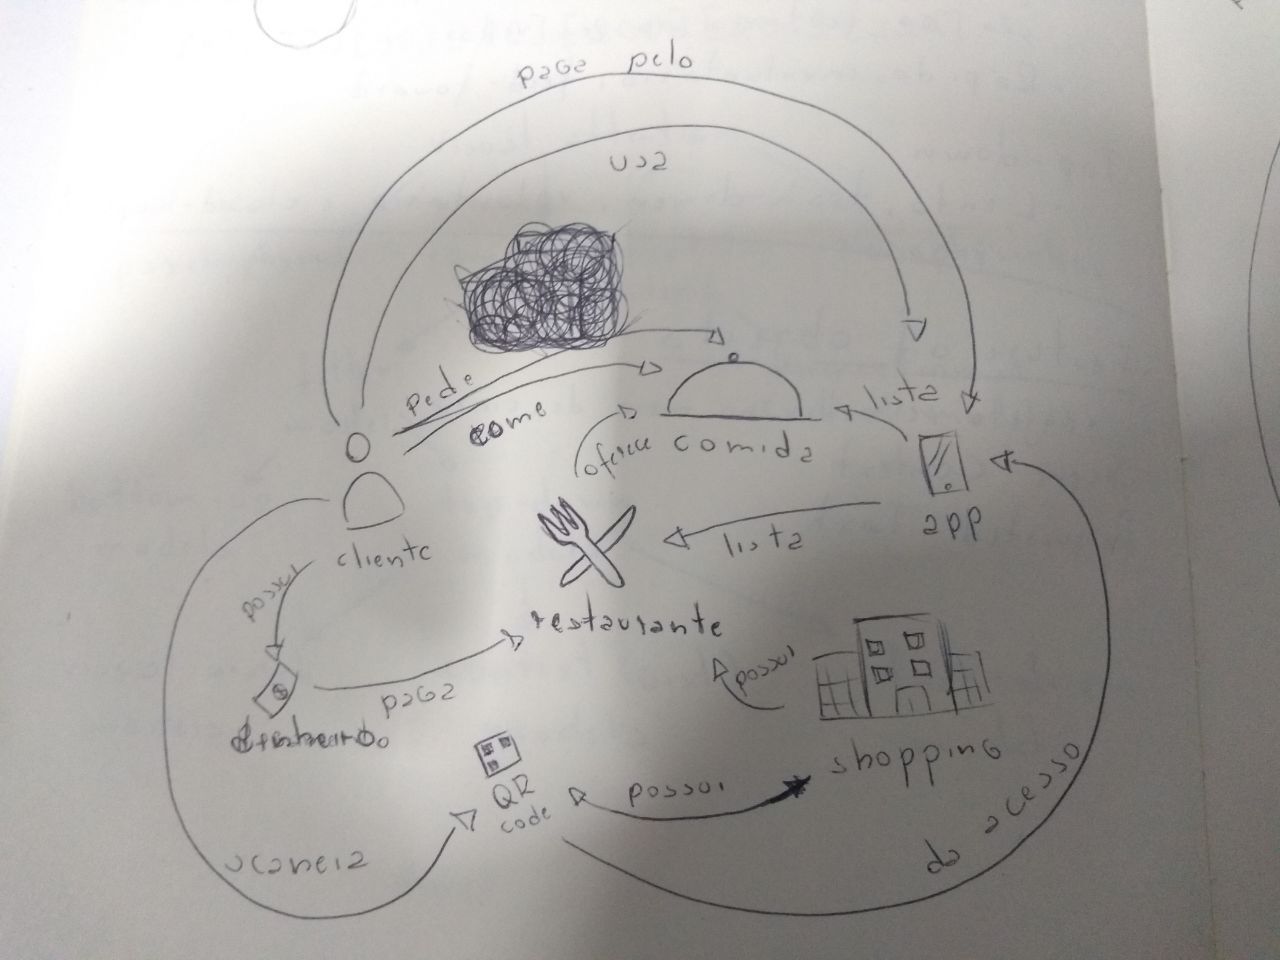 paga pelo
usa
pede
come
oferece
comida
lista
app
lista
cliente
possui
restaurante
paga
dinheiro
possui
shopping
QR
code
possui
scaneia
da acesso